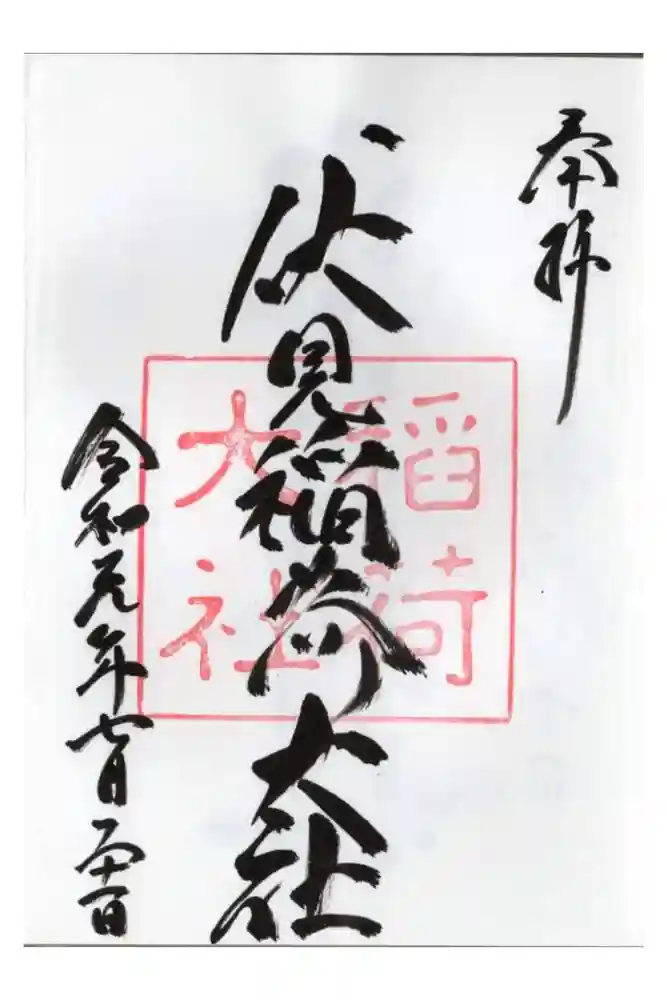 奉拝
伏見稲荷大社
稲荷
大社
令和元年七月二十一日